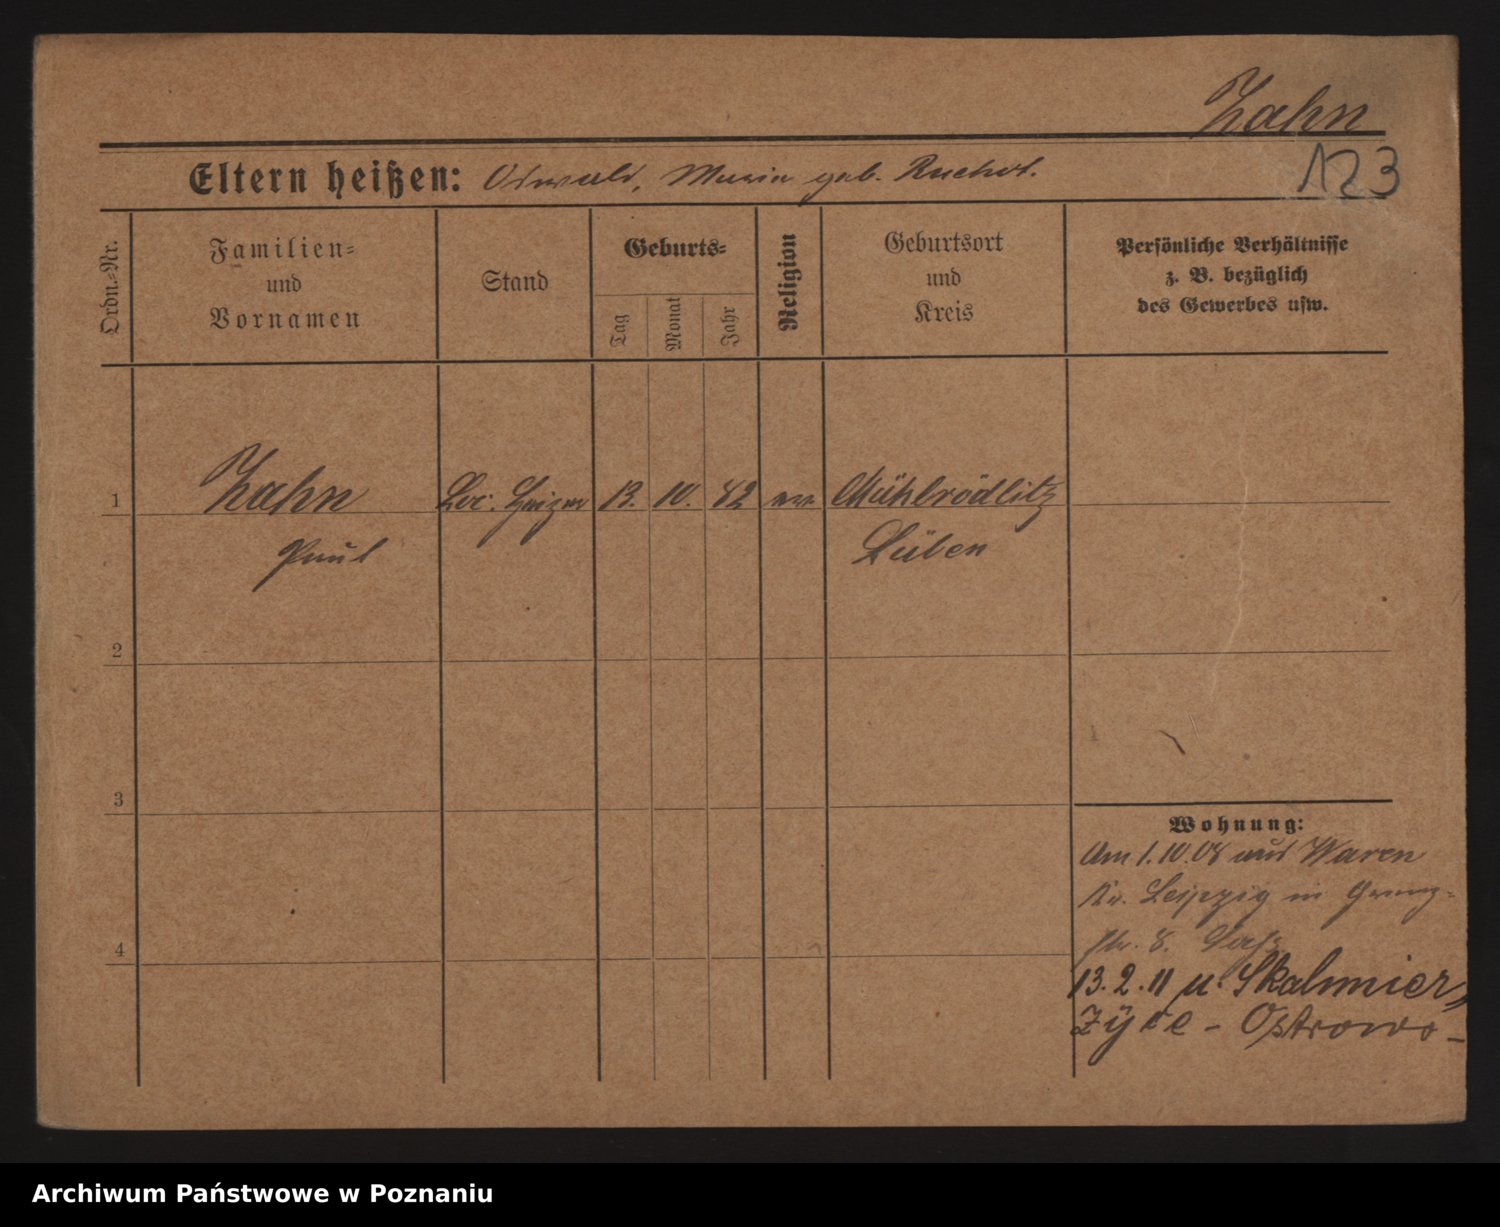 Zahn
123
Eltern heißen: Oswald, Maria geb.
Ordn.-Nr.
Familien-
und
Vornamen
Stand
Geburts-
Tag
Monat
Jahr
Religion
Geburtsort
und
Kreis
Persönliche Verhältnisse
z. B. bezüglich
des Gewerbes usw.
1
Zahn
Paul
Loc. Heizer
13.
10.
82
ev.
Mühlrödlitz
Lüben
2
3
4
Wohnung:
Am 1.10.08 aus Waren
Kr. Leipzig in Grenz-
str. 8.
13.2.11 n. Skalmier„
Zÿce - Ostrowo -
Archiwum Państwowe w Poznaniu